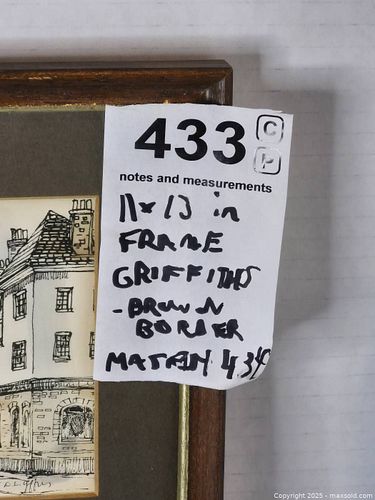 433
C
P
notes and measurements
11x13 in
FRAME
GRIFFITHS
-BROWN
BORDER
MATTED 434
Copyright 2025 - maxsold.com